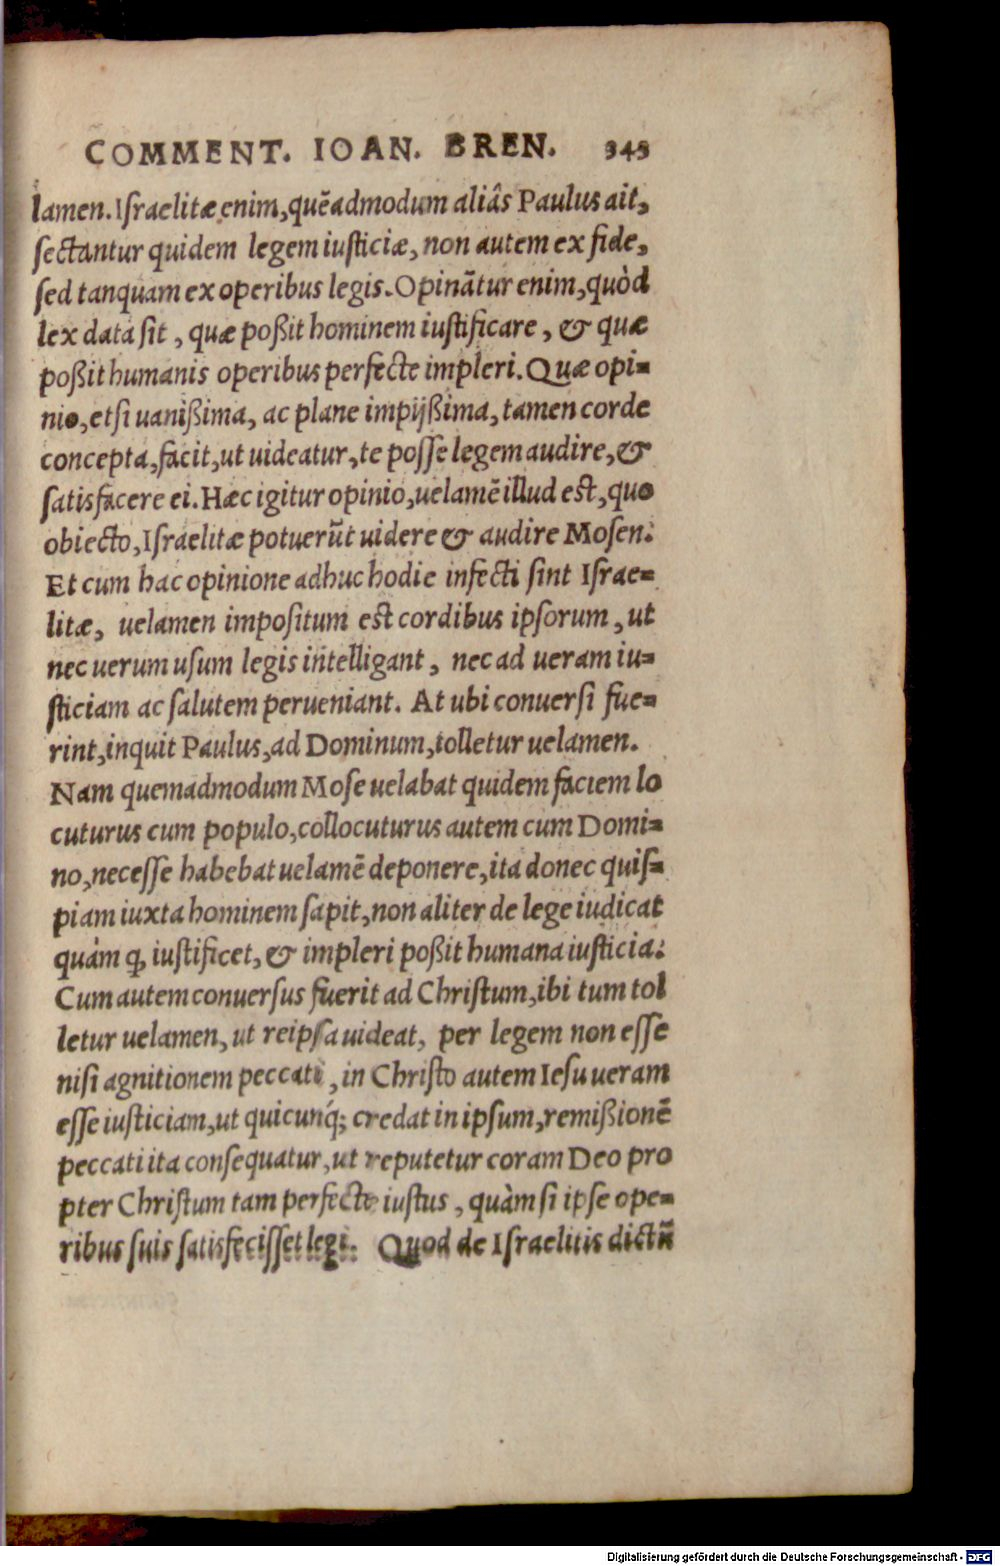 COMMENT. IOAN. BREN. 343
lamen. Iſraelitæ enim, quẽadmodum aliâs Paulus ait,
ſectantur quidem legem iuſticiæ, non autem ex fide,
ſed tanquam ex operibus legis. Opinãtur enim, quòd
lex data ſit, quæ poßit hominem iuſtificare, & quæ
poßit humanis operibus perfecte impleri. Quæ opi-
nio, etſi uanißima, ac plane impijßima, tamen corde
concepta, facit, ut uideatur, te poſſe legem audire, &
ſatisfacere ei. Hæc igitur opinio, uelamẽ illud eſt, quo
obiecto, Iſraelitæ potuerũt uidere & audire Moſen:
Et cum hac opinione adhuc hodie infecti ſint Iſrae-
litæ, uelamen impoſitum eſt cordibus ipſorum, ut
nec uerum uſum legis intelligant, nec ad ueram iu-
ſticiam ac ſalutem perueniant. At ubi conuerſi fue-
rint, inquit Paulus, ad Dominum, tolletur uelamen.
Nam quemadmodum Moſe uelabat quidem faciem lo
cuturus cum populo, collocuturus autem cum Domi-
no, neceſſe habebat uelamẽ deponere, ita donec quiſ-
piam iuxta hominem ſapit, non aliter de lege iudicat
quàm ꝙ iuſtificet, & impleri poßit humana iuſticia:
Cum autem conuerſus fuerit ad Chriſtum, ibi tum tol
letur uelamen, ut reipſa uideat, per legem non eſſe
niſi agnitionem peccati, in Chriſto autem Ieſu ueram
eſſe iuſticiam, ut quicunq́; credat in ipſum, remißionẽ
peccati ita conſequatur, ut reputetur coram Deo pro
pter Chriſtum tam perfecte iuſtus, quàm ſi ipſe ope-
ribus ſuis ſatisfeciſſet legi. Quod de Iſraelitis dictũ
Digitalisierung gefördert durch die Deutsche Forschungsgemeinschaft - DFG